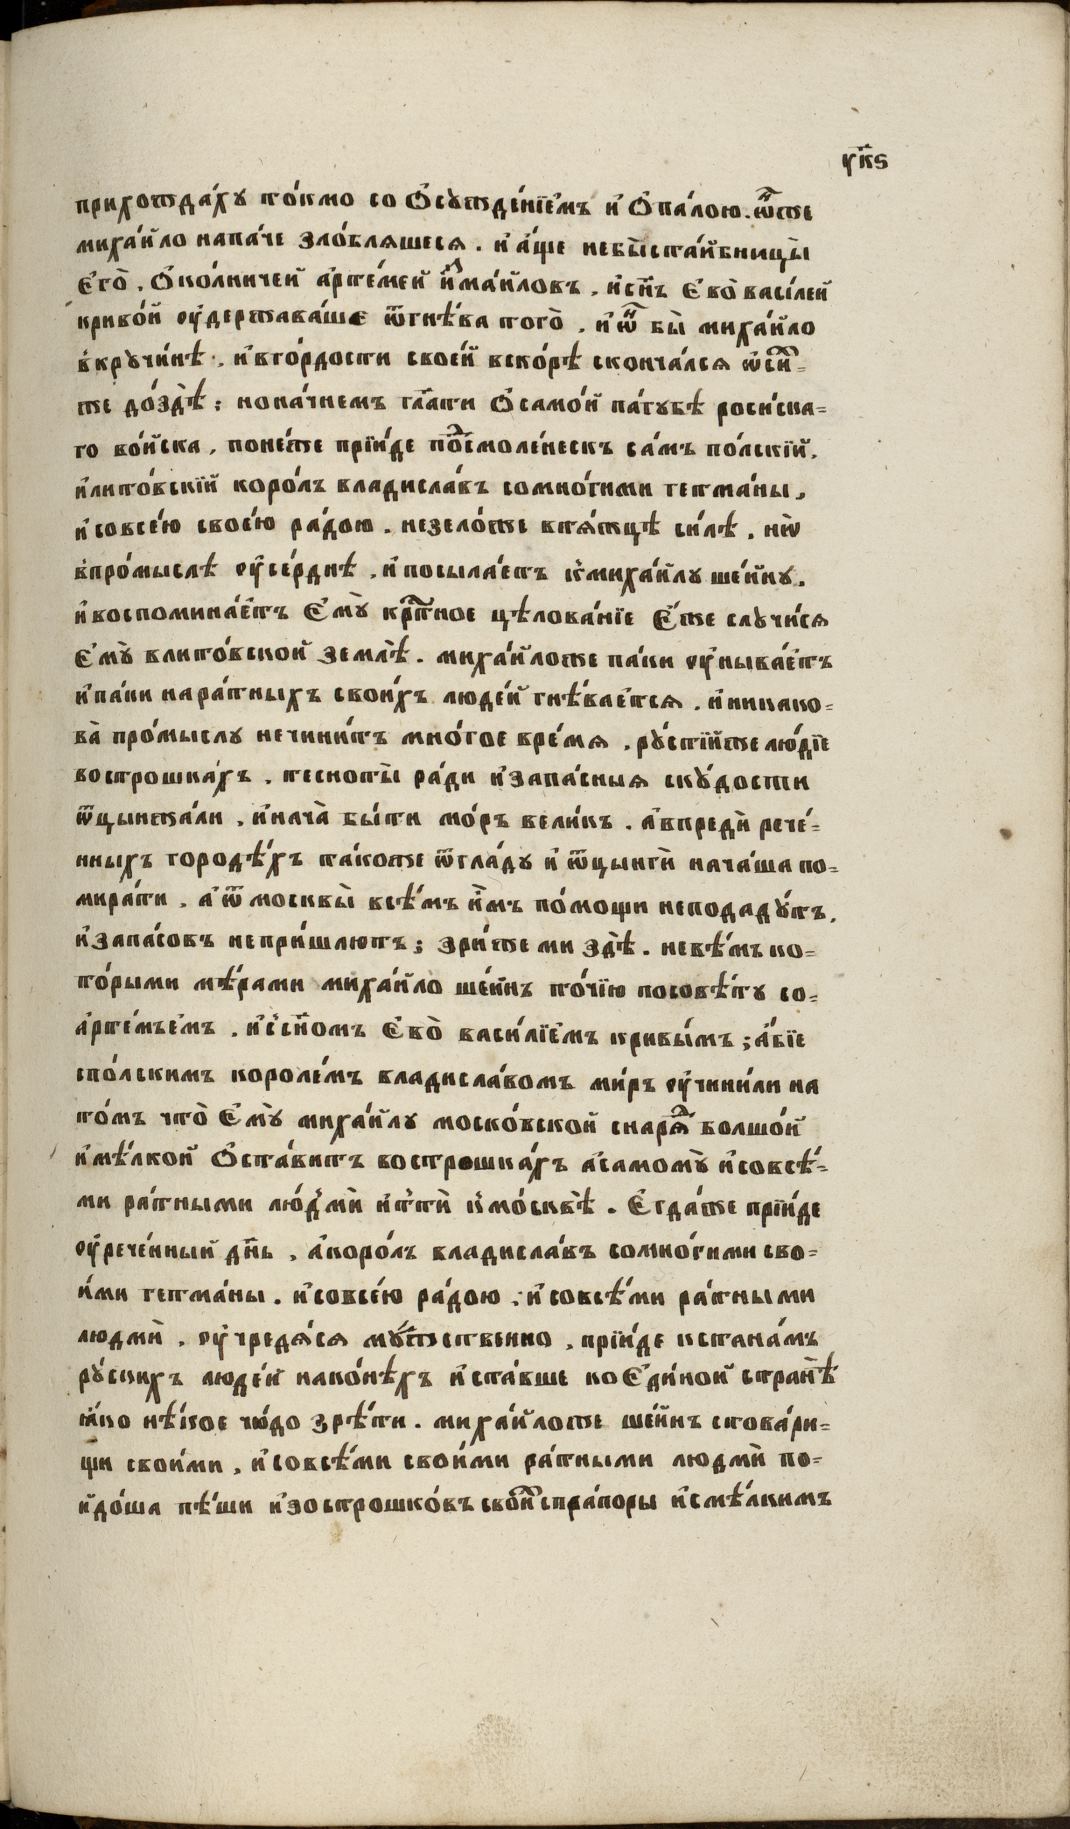 ѵ҃кѕ
прихождахꙋ то́кмо со Ѻ҆сꙋжде́нїемъ и҆ Ѻ҆па́лою. ѡ҆́нже
миха́йло напа́че ѕло́бляшеся. и҆ а҆́ще небы̀ста́йбницы̀
Є҆го̀, Ѻ҆ко́лничей а҆рте́мей и҆зма́йловъ, и҆сн҃ъ Є҆во̀ васі́лей
криво́й ѹ҆держава́ше ѿгнѣ́ва того̀, и҆ѿ бы̀ миха́йло
в̾крꙋчи́нѣ, и҆вго́рдости свое́й вско́рѣ сконча́лся ѡ҆си́х=
же до́здѣ̀; нона́чнемъ гл҃ати Ѻ҆само́й па́гꙋбѣ роси́ска=
го во́йска, поне́же прїи́де под̾смоле́нескъ са́мъ по́лскїй,
и҆лито́вскїй коро́лъ владисла́въ сомно́гими гетма́ны,
и҆совсе́ю свое́ю ра́дою. незело́же втя́жцѣ си́лѣ, нѡ̀
в̾про́мыслѣ ѹ҆се́рднѣ, и҆посыла́етъ к̾миха́йлꙋ ше́йнꙋ.
и҆воспомина́етъ Є҆мꙋ̀ крⷭ҇тное цѣлова́нїе Є҆́же слꙋчи́ся
Є҆мꙋ̀ влито́вской землѣ̀. миха́йложе паки ѹ҆ныва́етъ
и҆па́ки нара́тныхъ свои́хъ люде́й гнѣ́вается. и҆никако=
ва̀ про́мыслꙋ нечини́тъ мно́гое вре́мя, рꙋ́стїиже лю́дїе
вострошка́хъ, тесноты̀ ра́ди и҆запа́сныя скꙋ́дости
ѿцынжа́ли, и҆нача̀ бы́ти мо́ръ вели́къ. а҆впредѝ рече́=
нныхъ городѣ́хъ та́коже ѿгла́дꙋ и҆ ѿцынгѝ нача́ша по=
мира́ти, а҆ ѿ москвы̀ всѣ́мъ и҆̀мъ по́мощи неподадꙋ́тъ,
и҆запа́совъ непри́шлютъ; зри́же ми здѣ̀. невѣ́мъ ко=
то́рыми мѣ́рами миха́йло ше́инъ то́чїю посовѣ́тꙋ со=
а҆рте́мъемъ, и҆ссн҃омъ Є҆во̀ васи́лїемъ кривы́мъ; а҆́бїе
спо́лскимъ короле́мъ владисла́вомъ ми́ръ ѹ҆чини́ли на
то́мъ что̀ Є҆мꙋ̀ миха́йлꙋ моско́вской снаря́д болшо́й
и҆мѣ́лкой Ѻ҆ста́витъ вострошка́хъ а҆самомꙋ̀ и҆совсѣ́=
ми ра́тными лю́дмѝ и҆тѝ к̾мо́сквѣ̀. Є҆гда́же прїи́де
ѹ҆рече́нный дн҃ь, а҆коро́лъ владисла́въ сомно́гими сво=
и́ми гетма́ны. и҆совсе́ю ра́дою, и҆совсѣ́ми ра́тными
людмѝ, ѹ҆чредя́ся мꙋ́жественно, прїи́де кстана́мъ
рꙋ́скихъ люде́й нако́нѣхъ и҆ста́вше коЄ҆ди́ной странѣ̀
ꙗ҆́ко нѣ́кое чю́до зрѣ́ти. миха́йложе ше́инъ стова́ри=
щи свои́ми, и҆совсѣ́ми свои́ми ра́тными людмѝ по=
йдо́ша пѣ́ши и҆зострошко́въ свои́х спра́поры и҆смѣ́лкимъ